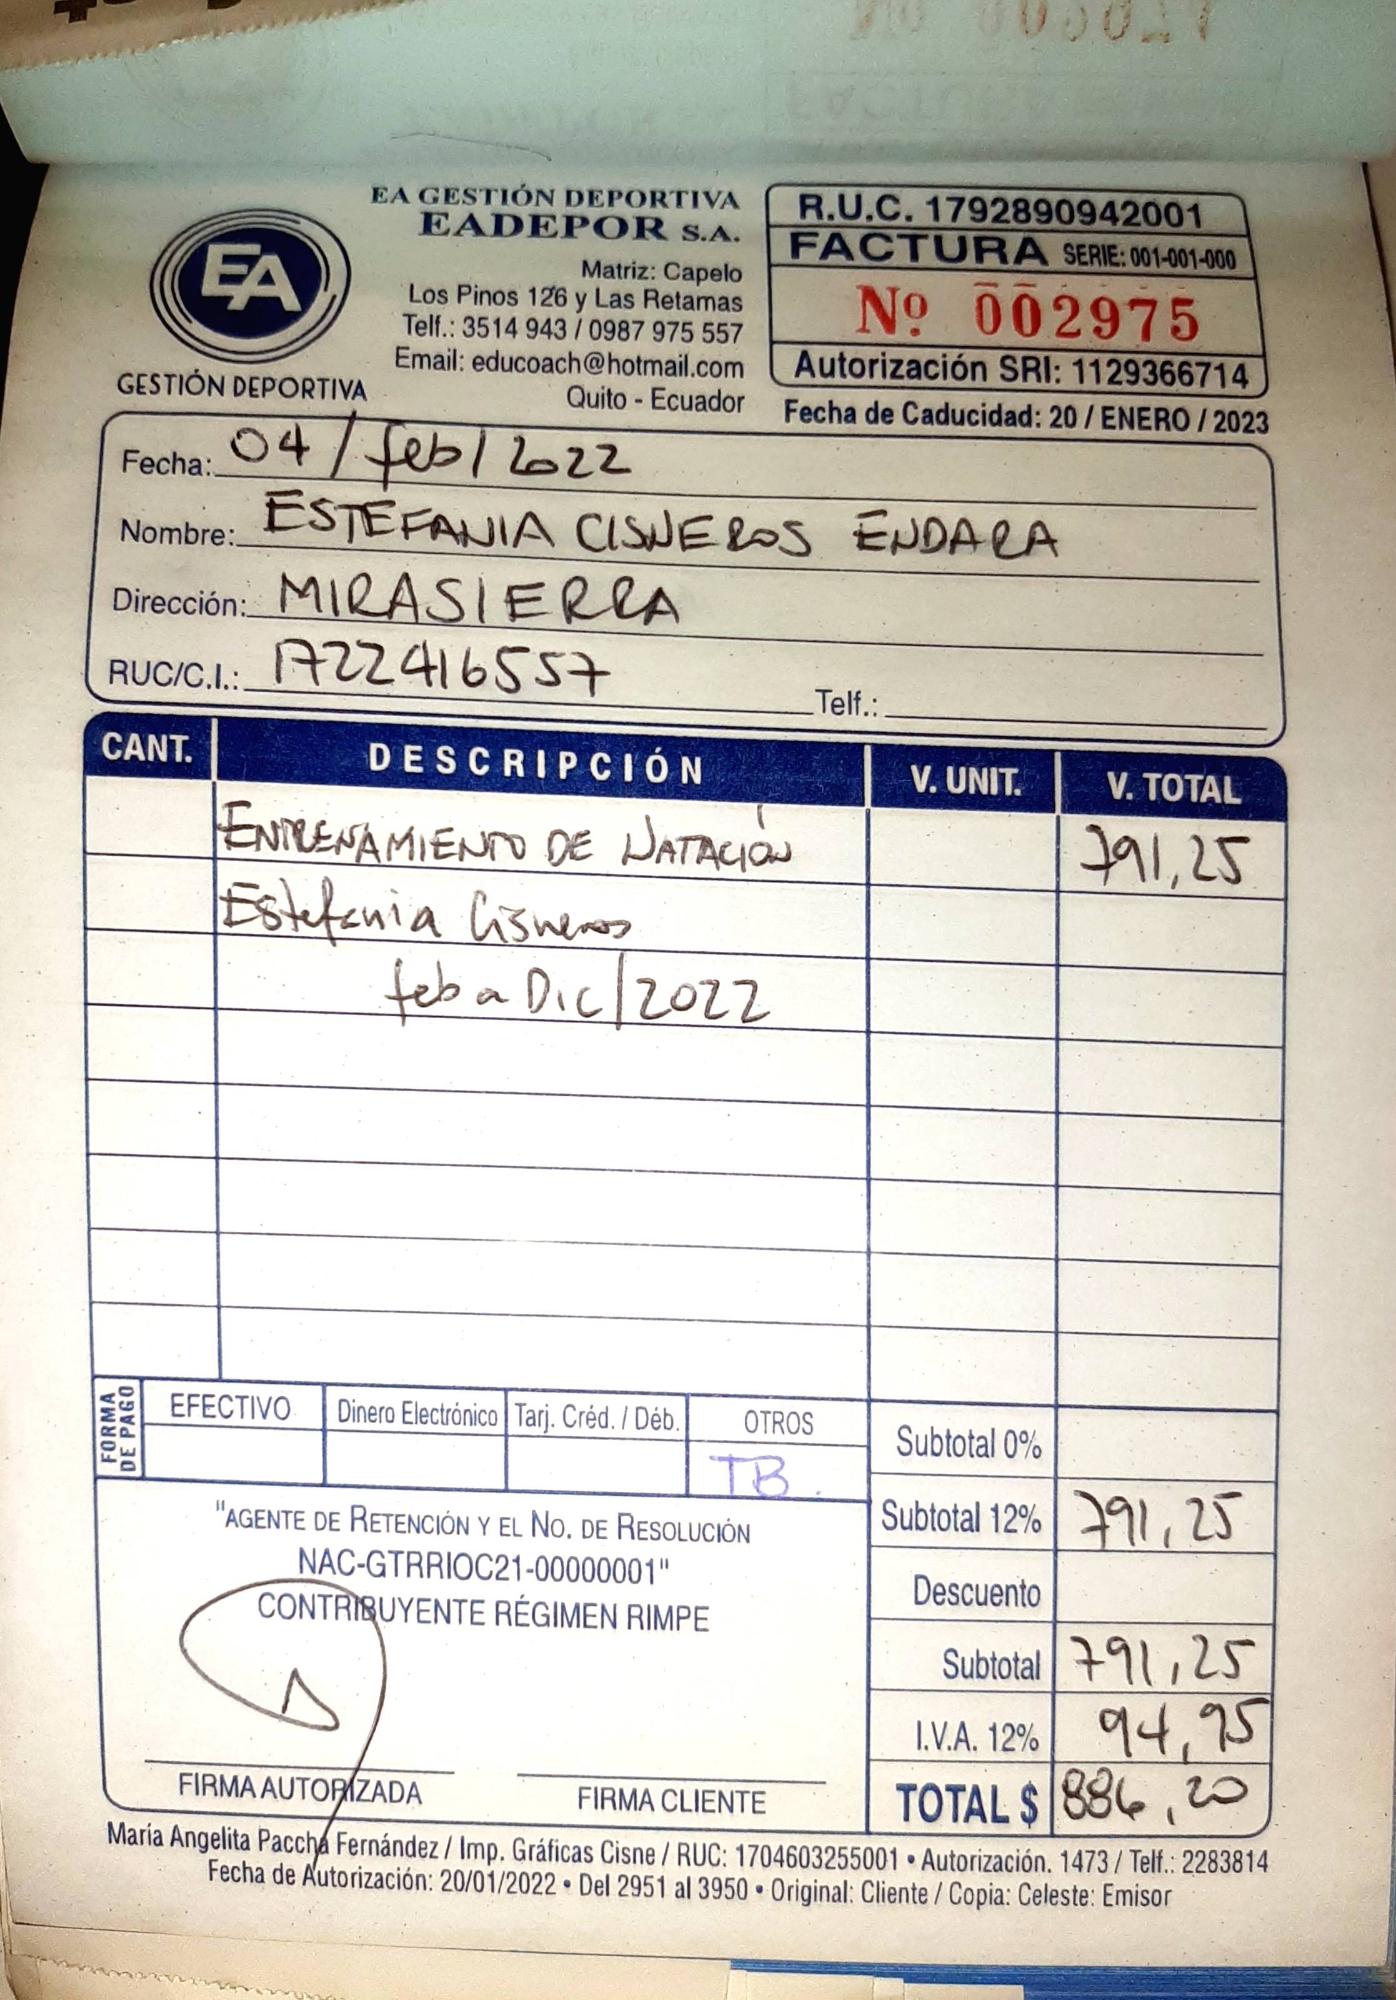 EA GESTIÓN DEPORTIVA
EADEPOR S.A.
Matriz: Capelo
Los Pinos 126 y Las Retamas
Telf.: 3514 943 / 0987 975 557
Email: educoach@hotmail.com
Quito - Ecuador
EA
GESTIÓN DEPORTIVA
R.U.C. 1792890942001
FACTURA SERIE: 001-001-000
Nº 002975
Autorización SRI: 1129366714
Fecha de Caducidad: 20 / ENERO / 2023
Fecha: 04 / feb / 2022
Nombre: ESTEFANIA CISNEROS ENDARA
Dirección: MIRASIERRA
RUC/C.I.: 1722416557 Telf.:
CANT. DESCRIPCIÓN V. UNIT. V. TOTAL
ENTRENAMIENTO DE NATACIÓN 791,25
Estefania Cisneros
feb a Dic/2022
FORMA DE PAGO
EFECTIVO Dinero Electrónico Tarj. Créd. / Déb. OTROS
TB.
Subtotal 0%
Subtotal 12% 791,25
Descuento
Subtotal 791,25
I.V.A. 12% 94,95
TOTAL $ 886,20
"AGENTE DE RETENCIÓN Y EL NO. DE RESOLUCIÓN
NAC-GTRRIOC21-00000001"
CONTRIBUYENTE RÉGIMEN RIMPE
FIRMA AUTORIZADA FIRMA CLIENTE
María Angelita Paccha Fernández / Imp. Gráficas Cisne / RUC: 1704603255001 • Autorización. 1473 / Telf.: 2283814
Fecha de Autorización: 20/01/2022 • Del 2951 al 3950 • Original: Cliente / Copia: Celeste: Emisor